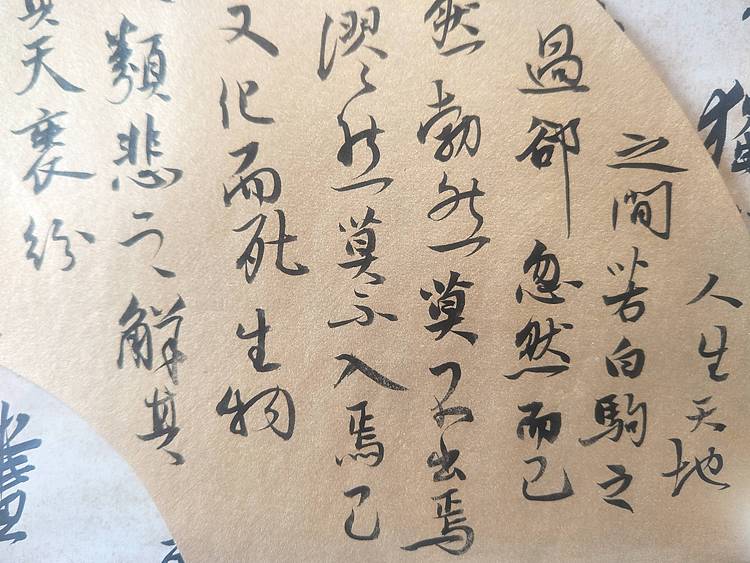 人生天地
之間若白駒之
過郤忽然而已
然勃然莫不出焉
漻然莫不入焉已
又化而死生物
類悲之解其
其天袠紛